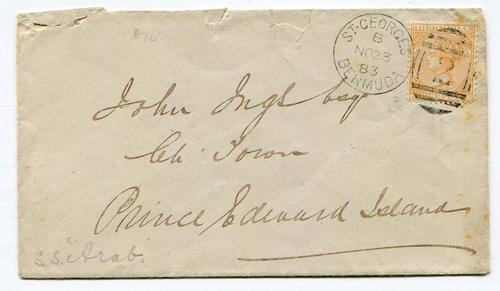 ST. GEORGES
B
NO 23
83
BERMUDA
2
John Ings Esq
Ch Town
Prince Edward Island
S.S. "Arab."